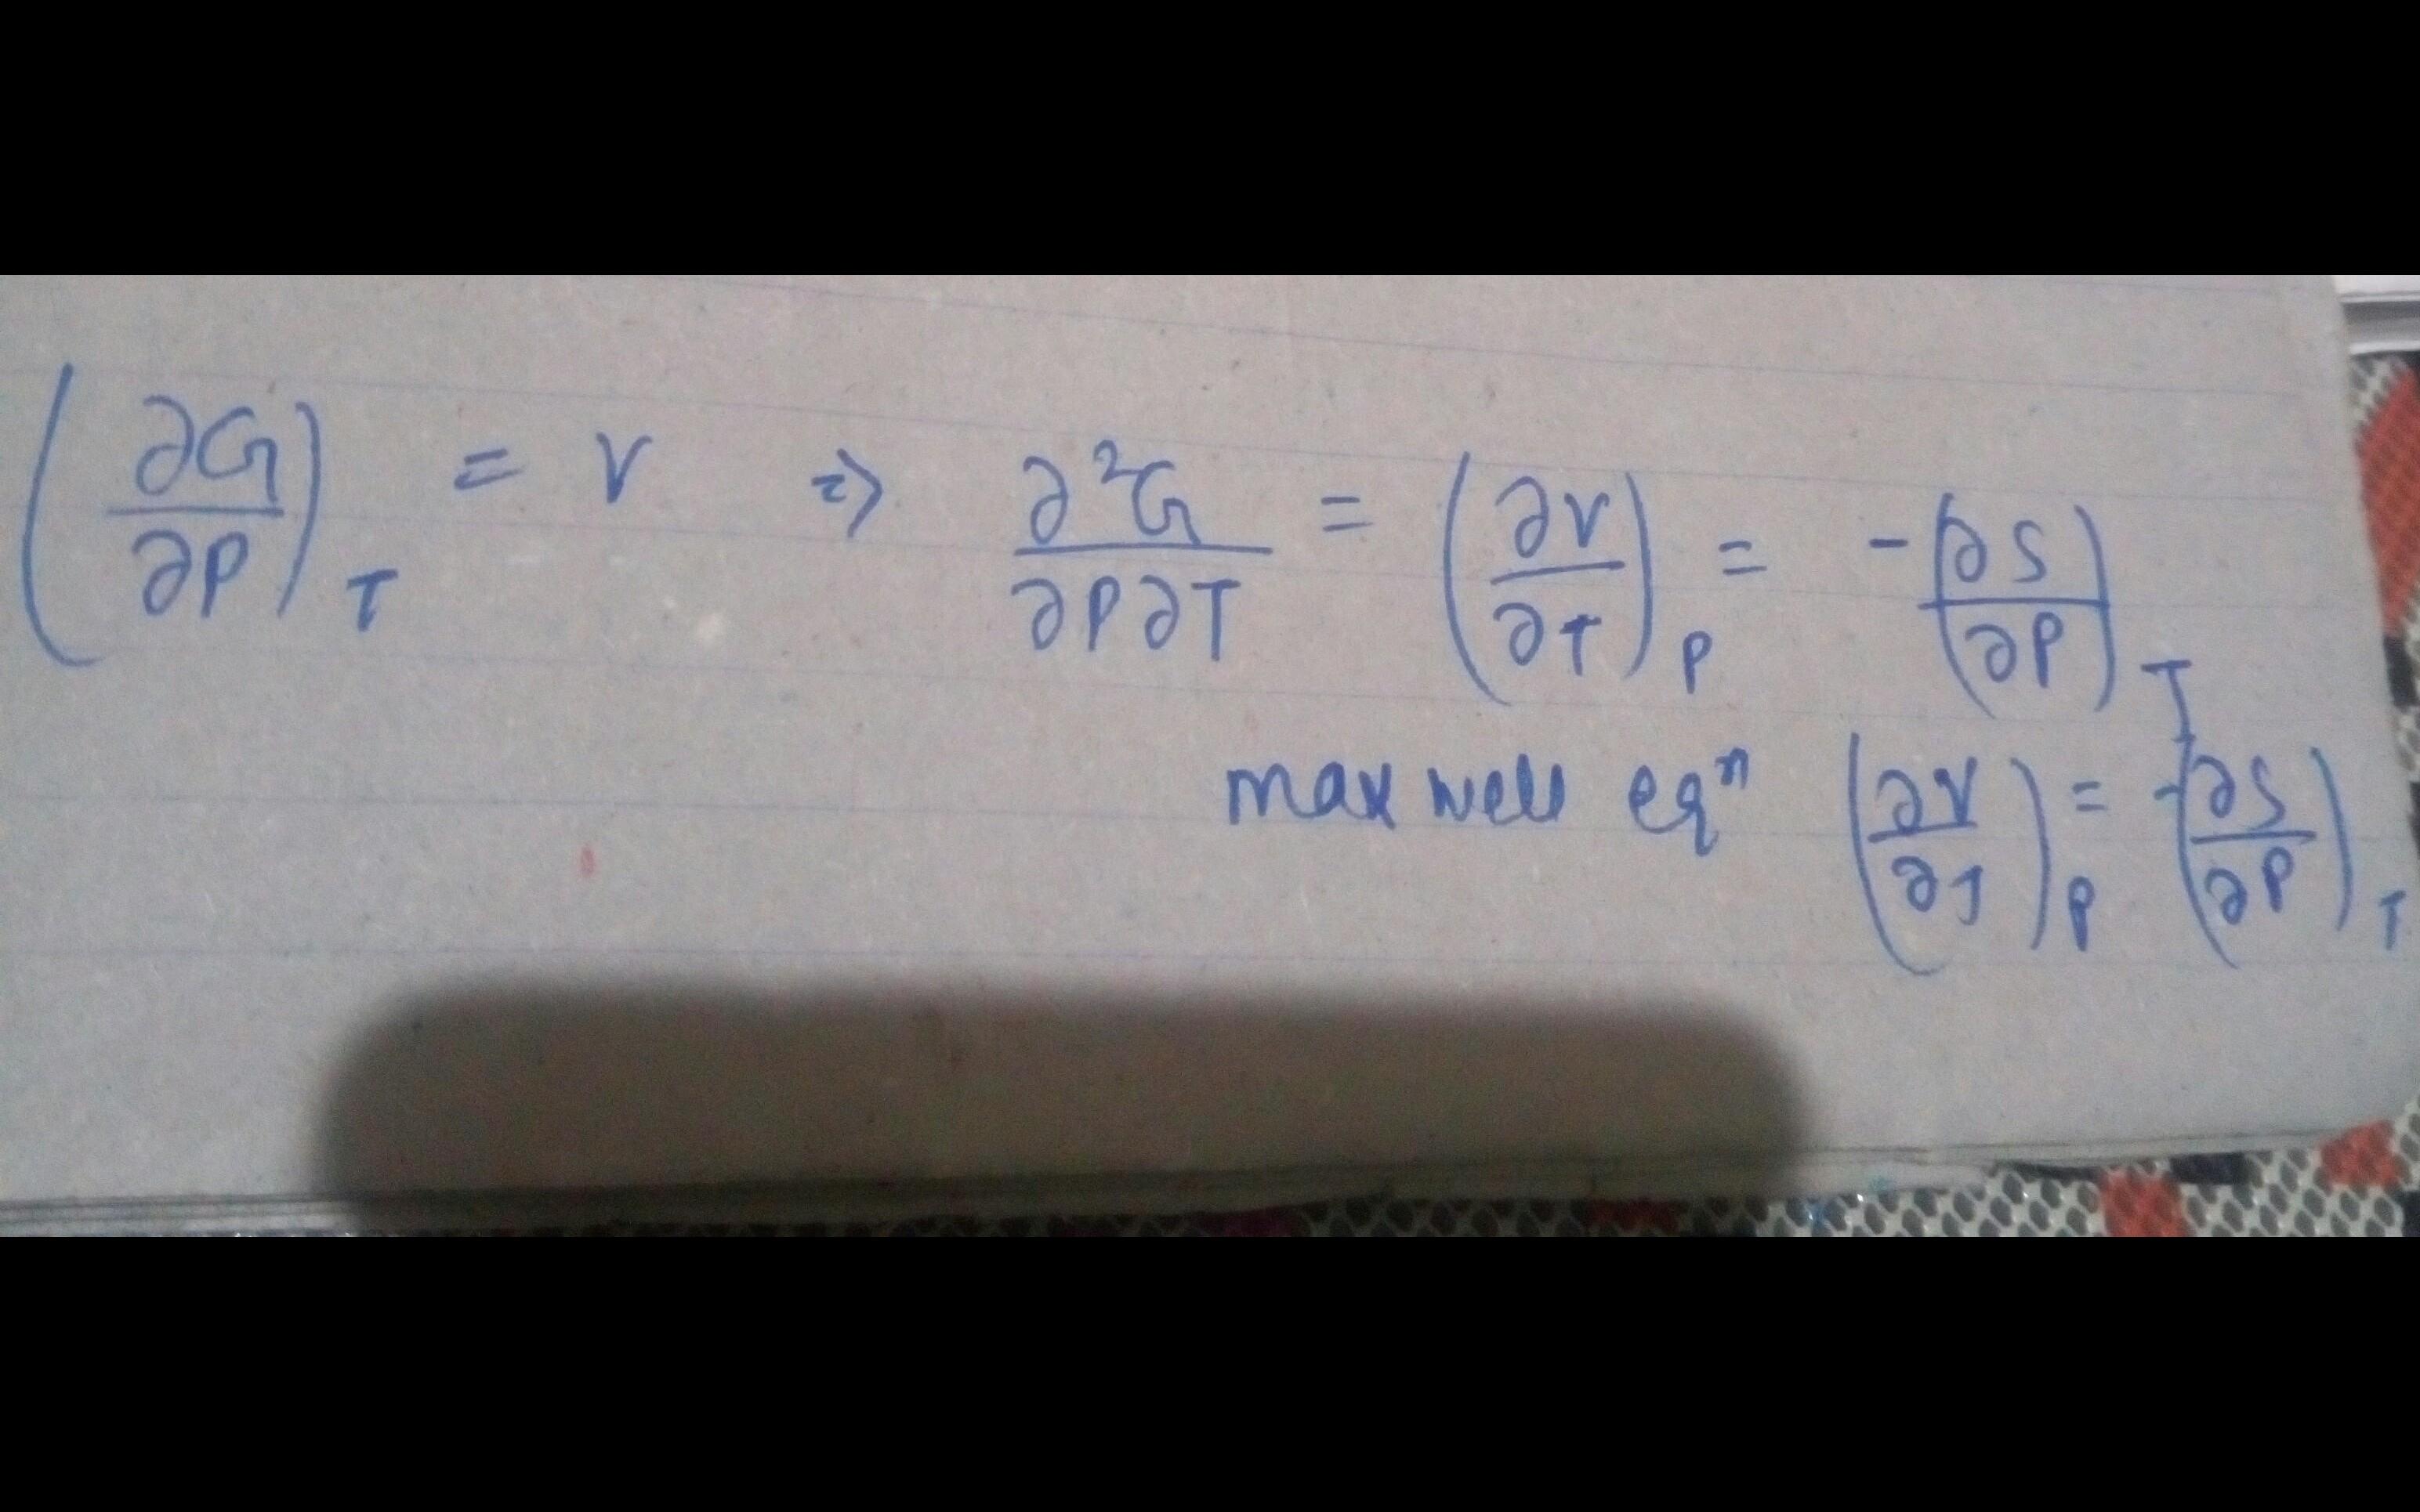 (∂G/∂P)_T = V ⇒ ∂²G/∂P∂T = (∂V/∂T)_P = -(∂S/∂P)_T
maxwell eqⁿ (∂V/∂T)_P = -(∂S/∂P)_T